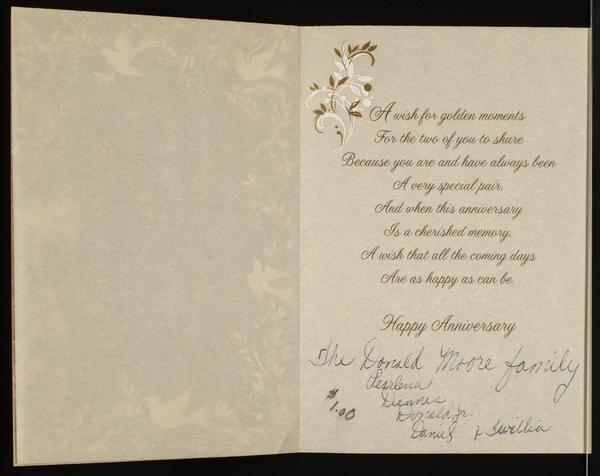 A wish for golden moments
For the two of you to share
Because you are and have always been
A very special pair.
And when this anniversary
Is a cherished memory.
A wish that all the coming days
Are as happy as can be.
Happy Anniversary
The Donald Moore family
Pearlena
Dennis
$1.00
Donald Jr.
Daniel &